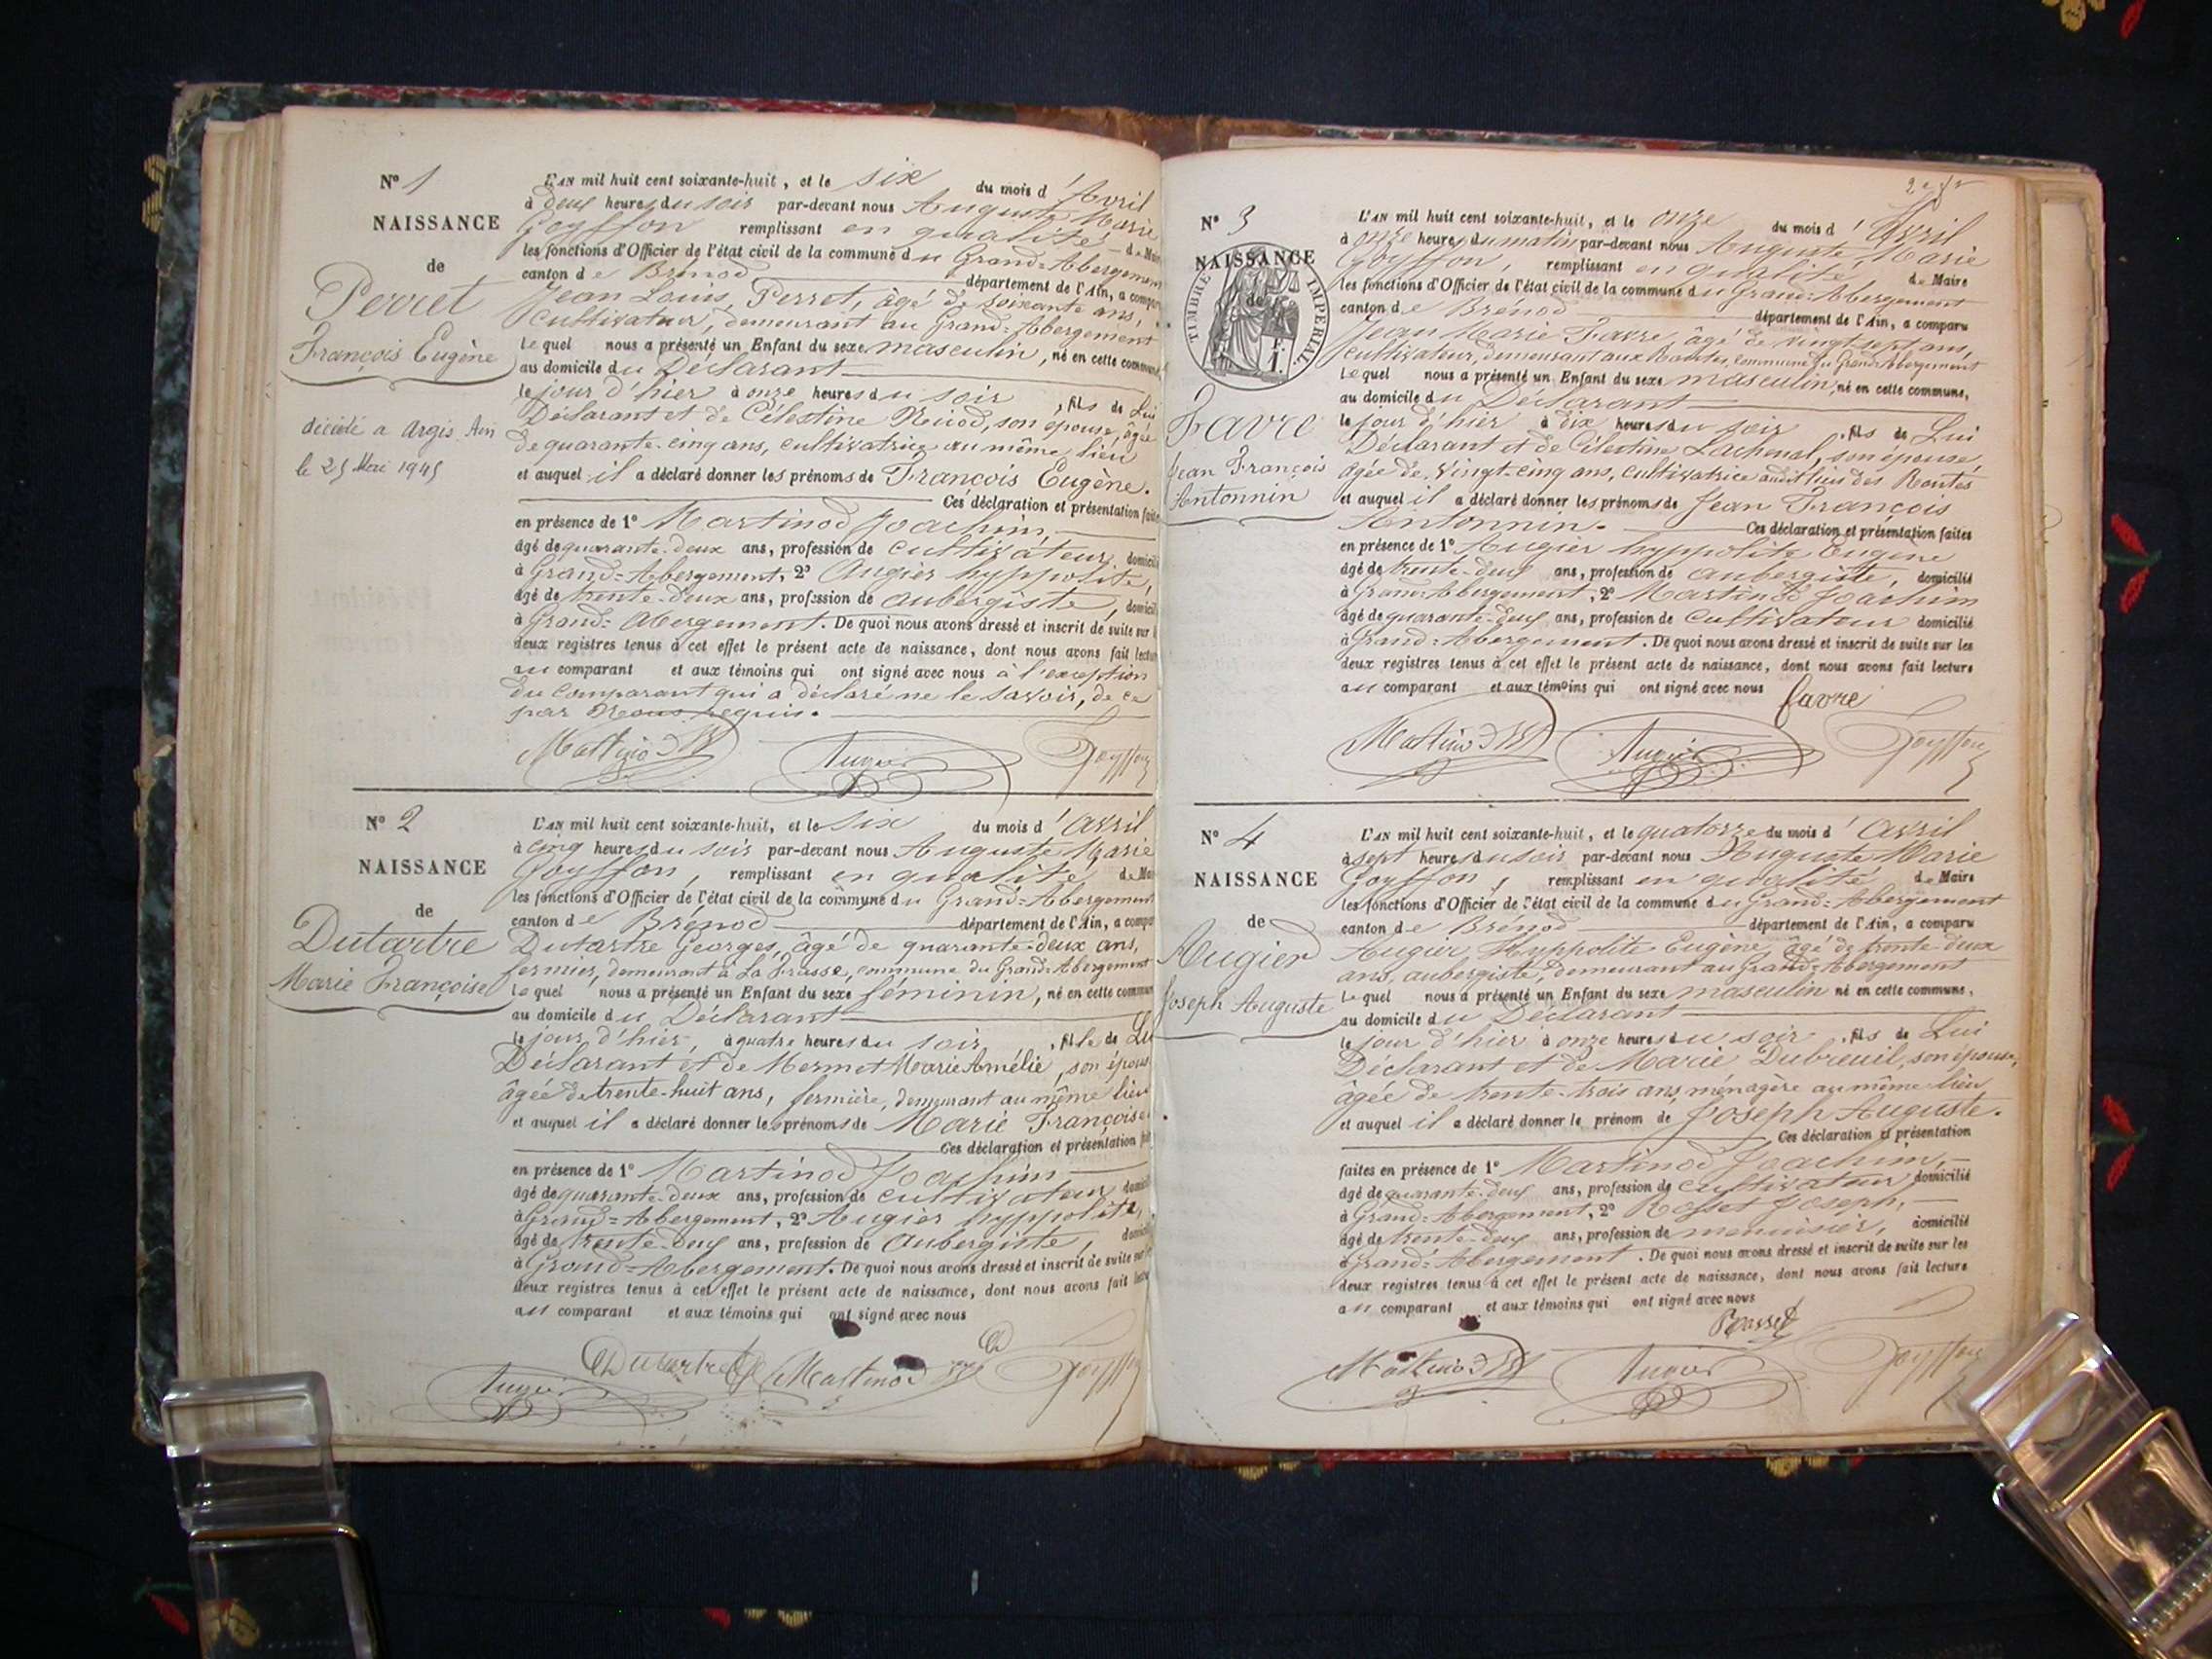 Nº 1
NAISSANCE
de
Perret
François Eugène
décédé a Argis Ain
le 25 Mai 1945
L'AN mil huit cent soixante-huit, et le six du mois d'Avril
à deux heures du soir par-devant nous Auguste Marie
Goyffon remplissant en qualité de Maire
les fonctions d'Officier de l'état civil de la commune du Grand-Abergement
canton de Brénod département de l'Ain, a comparu
Jean Louis Perret, âgé de soixante ans,
cultivateur, demeurant au Grand-Abergement
Lequel nous a présenté un Enfant du sexe masculin, né en cette commune,
au domicile du Déclarant
le jour d'hier à onze heures du soir, fils de Lui
Déclarant et de Célestine, son épouse, âgée
de quarante-cinq ans, cultivatrice au même lieu
et auquel il a déclaré donner les prénoms de François Eugène.
Ces déclaration et présentation faites
en présence de 1º Martinod Joachim,
âgé de quarante-deux ans, profession de cultivateur, domicilié
à Grand-Abergement, 2º Augier hyppolite,
âgé de trente-deux ans, profession de aubergiste, domicilié
à Grand-Abergement. De quoi nous avons dressé et inscrit de suite sur les
deux registres tenus à cet effet le présent acte de naissance, dont nous avons fait lecture
au comparant et aux témoins qui ont signé avec nous à l'exception
du comparant qui a déclaré ne le savoir, de ce
par Nous requis.
Martinod Augier Goyffon
Nº 2
NAISSANCE
de
Dutartre
Marie Françoise
L'AN mil huit cent soixante-huit, et le six du mois d'avril
à cinq heures du soir par-devant nous Auguste Marie
Goyffon, remplissant en qualité de Maire
les fonctions d'Officier de l'état civil de la commune du Grand-Abergement
canton de Brénod département de l'Ain, a comparu
Dutartre Georges, âgé de quarante-deux ans,
fermier, demeurant à La, commune du Grand-Abergement
Lequel nous a présenté un Enfant du sexe féminin, né en cette commune
au domicile du Déclarant
le jour d'hier, à quatre heures du soir, fille de Lui
Déclarant et de Mermet Marie Amélie, son épouse
âgée de trente-huit ans, fermière, demeurant au même lieu
et auquel il a déclaré donner les prénoms de Marie Françoise.
Ces déclaration et présentation faites
en présence de 1º Martinod Joachim
âgé de quarante-deux ans, profession de cultivateur domicilié
à Grand-Abergement, 2º Augier hyppolite,
âgé de trente-deux ans, profession de aubergiste, domicilié
à Grand-Abergement. De quoi nous avons dressé et inscrit de suite sur les
deux registres tenus à cet effet le présent acte de naissance, dont nous avons fait lecture
au comparant et aux témoins qui ont signé avec nous
Dutartre Martinod Goyffon
Augier
Nº 3
NAISSANCE
de
TIMBRE IMPERIAL
Favre
Jean François
Antonnin
L'AN mil huit cent soixante-huit, et le onze du mois d'Avril
à onze heures du matin par-devant nous Auguste Marie
Goyffon, remplissant en qualité de Maire
les fonctions d'Officier de l'état civil de la commune du Grand-Abergement
canton de Brénod département de l'Ain, a comparu
Jean Marie Favre, âgé de vingt-sept ans,
cultivateur, demeurant aux Routes, commune du Grand-Abergement
Lequel nous a présenté un Enfant du sexe masculin, né en cette commune,
au domicile du Déclarant
le jour d'hier à dix heures du soir, fils de Lui
Déclarant et de Célestine Lachenal, son épouse,
âgée de vingt-cinq ans, cultivatrice audit lieu des Routes
et auquel il a déclaré donner les prénoms de Jean François
Antonnin. Ces déclaration et présentation faites
en présence de 1º Augier hyppolite Eugène
âgé de trente-deux ans, profession de aubergiste, domicilié
à Grand-Abergement, 2º Martinod Joachim
âgé de quarante-deux ans, profession de cultivateur domicilié
à Grand-Abergement. De quoi nous avons dressé et inscrit de suite sur les
deux registres tenus à cet effet le présent acte de naissance, dont nous avons fait lecture
au comparant et aux témoins qui ont signé avec nous favre
Martinod Augier Goyffon
Nº 4
NAISSANCE
de
Augier
Joseph Auguste
L'AN mil huit cent soixante-huit, et le quatorze du mois d'avril
à sept heures du soir par-devant nous Auguste Marie
Goyffon, remplissant en qualité de Maire
les fonctions d'Officier de l'état civil de la commune du Grand-Abergement
canton de Brénod département de l'Ain, a comparu
Augier Hyppolite Eugène, âgé de trente-deux
ans, aubergiste, demeurant au Grand-Abergement
Lequel nous a présenté un Enfant du sexe masculin né en cette commune,
au domicile du Déclarant
le jour d'hier à onze heures du soir, fils de Lui
Déclarant et de Marie Dubreuil, son épouse,
âgée de trente-trois ans, ménagère au même lieu
et auquel il a déclaré donner le prénom de Joseph Auguste.
Ces déclaration et présentation
faites en présence de 1º Martinod Joachim,
âgé de quarante-deux ans, profession de cultivateur, domicilié
à Grand-Abergement, 2º Rosset Joseph,
âgé de trente-deux ans, profession de menuisier, domicilié
à Grand-Abergement. De quoi nous avons dressé et inscrit de suite sur les
deux registres tenus à cet effet le présent acte de naissance, dont nous avons fait lecture
au comparant et aux témoins qui ont signé avec nous
Rosset
Martinod Augier Goyffon